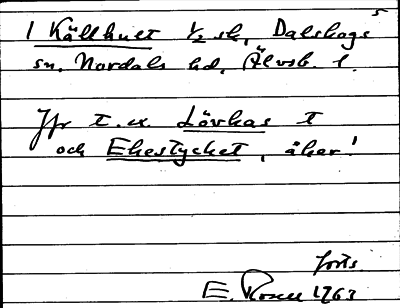 1 Källhult 1/2 sk, Dalskogs
sn. Nordals hd, Älvsb. l.
Jfr t.ex. Lövhas t
och Ekestycket, åker!
forts.
E. Rosen 1963